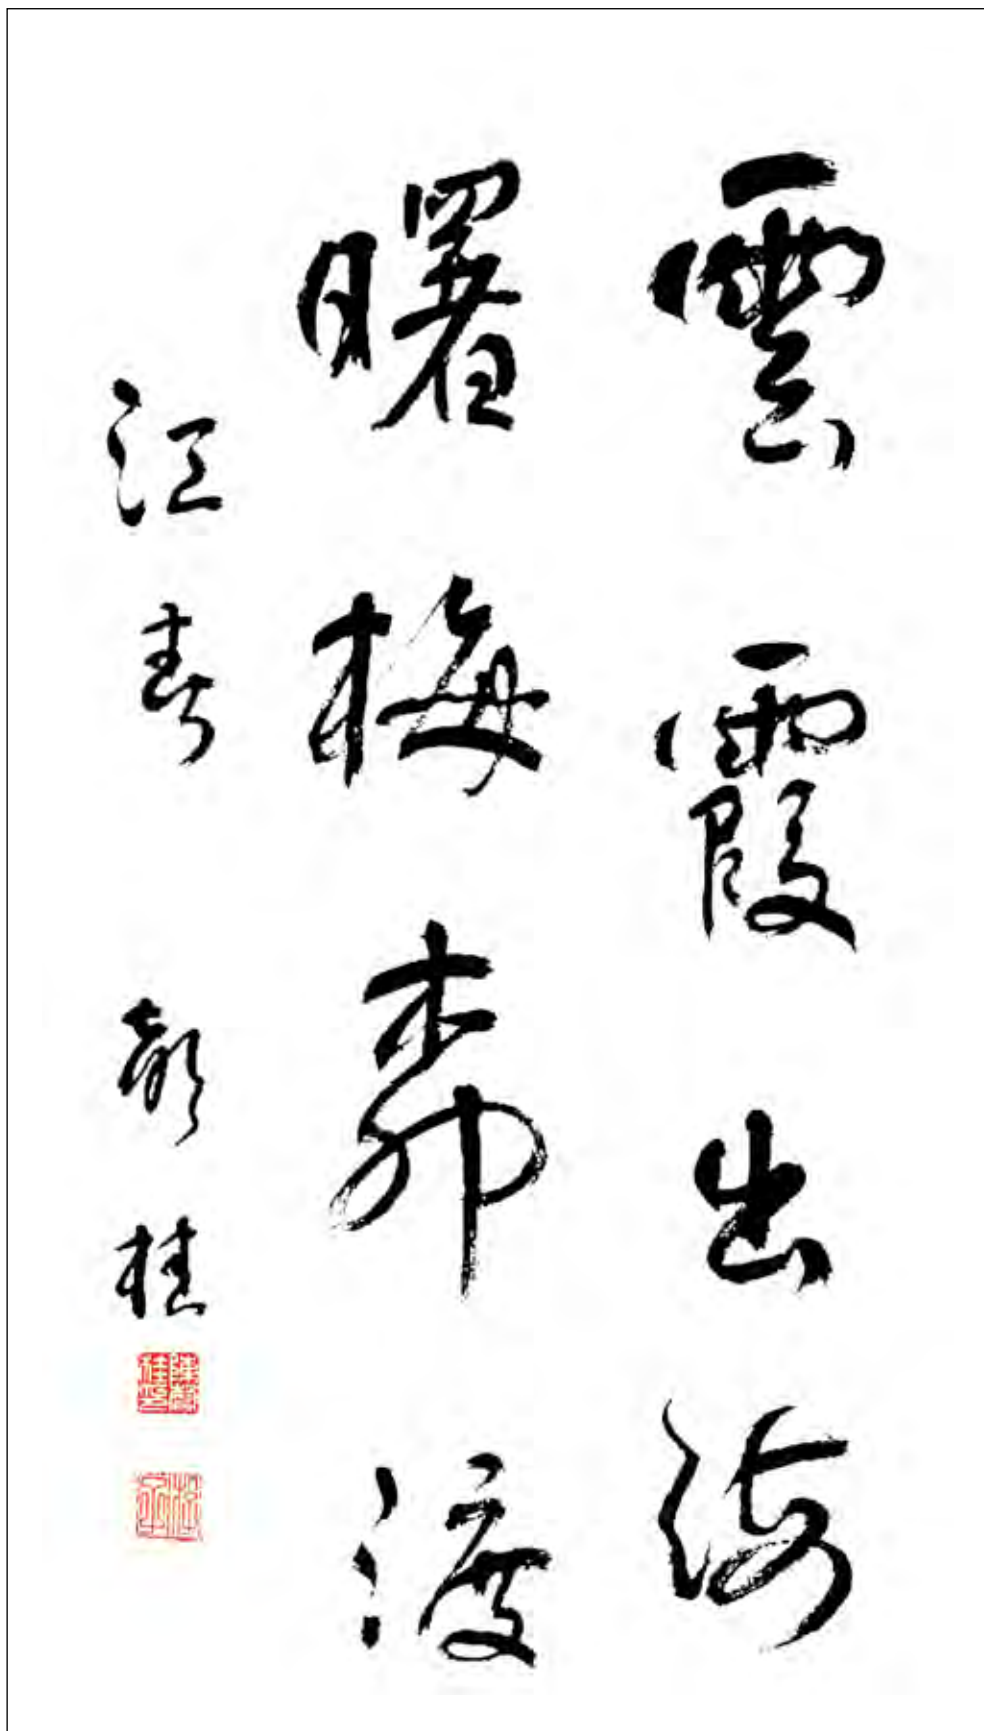 雲霞出海
曙梅柳渡
江春
桂